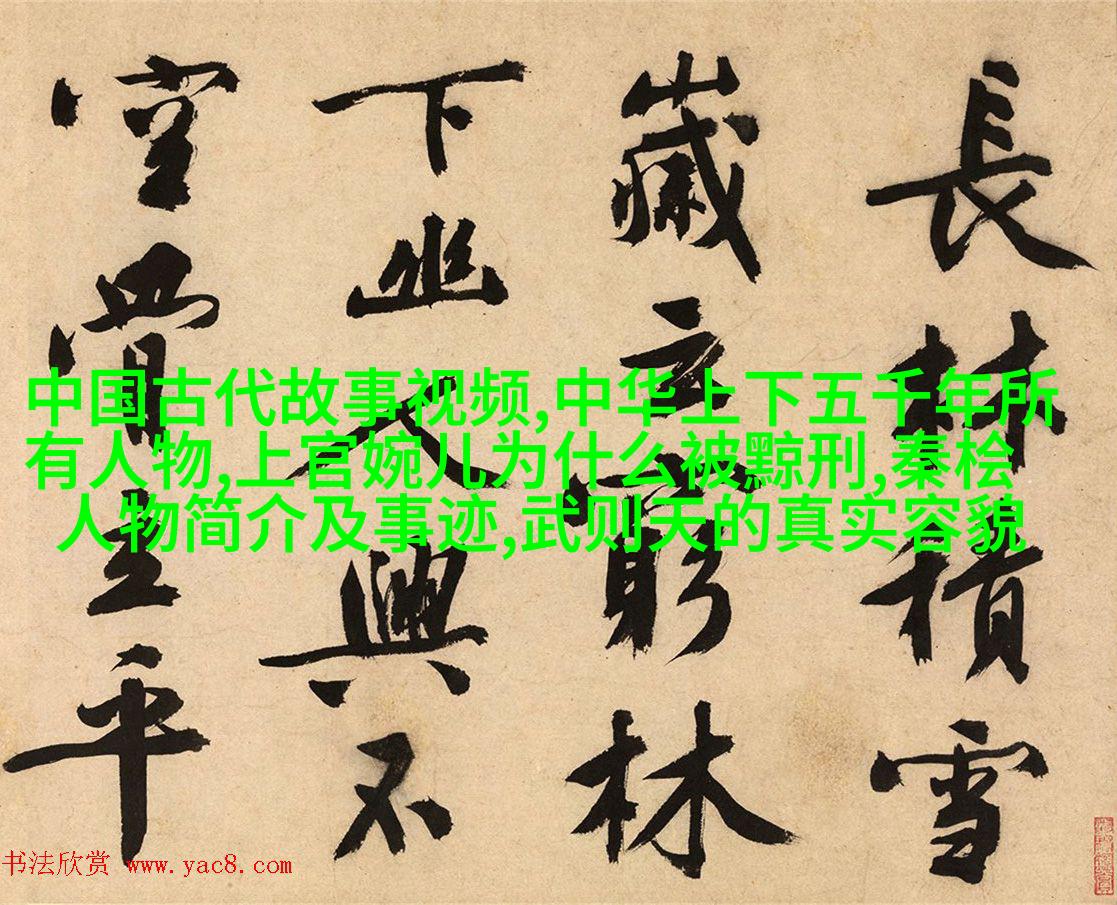 長林積雪
歲云窮林
下幽人興不
空賞生平
中国古代故事视频,中华上下五千年所
有人物,上官婉儿为什么被黥刑,秦桧
人物简介及事迹,武则天的真实容貌
书法欣赏 www.yac8.com